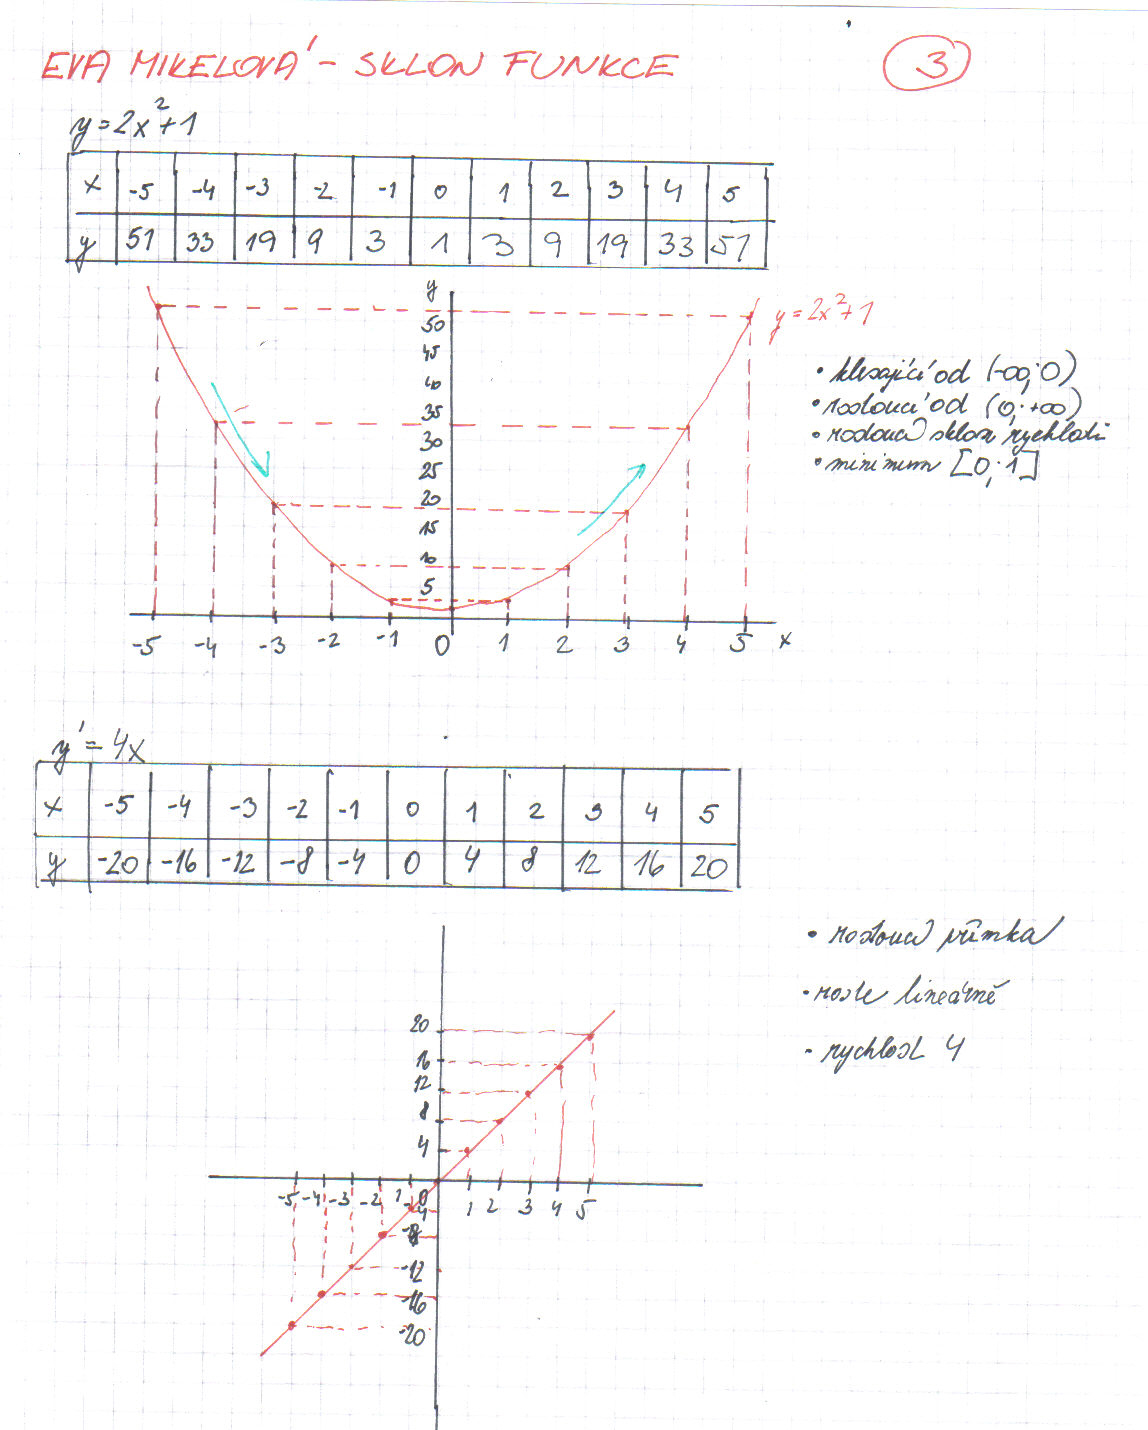 EVA MIKELOVÁ - SKLON FUNKCE 3
y=2x²+1
x -5 -4 -3 -2 -1 0 1 2 3 4 5
y 51 33 19 9 3 1 3 9 19 33 51
y
50
45
40
35
30
25
20
15
10
5
-5 -4 -3 -2 -1 0 1 2 3 4 5 x
y=2x²+1
• klesající od (-∞;0)
• rostoucí od (0;+∞)
• rostoucí sklon rychlosti
• minimum [0;1]
y'=4x
x -5 -4 -3 -2 -1 0 1 2 3 4 5
y -20 -16 -12 -8 -4 0 4 8 12 16 20
• rostoucí přímka
• roste lineárně
- rychlost 4
20
16
12
8
4
-5 -4 -3 -2 1 0 1 2 3 4 5
-4
-8
-12
-16
-20